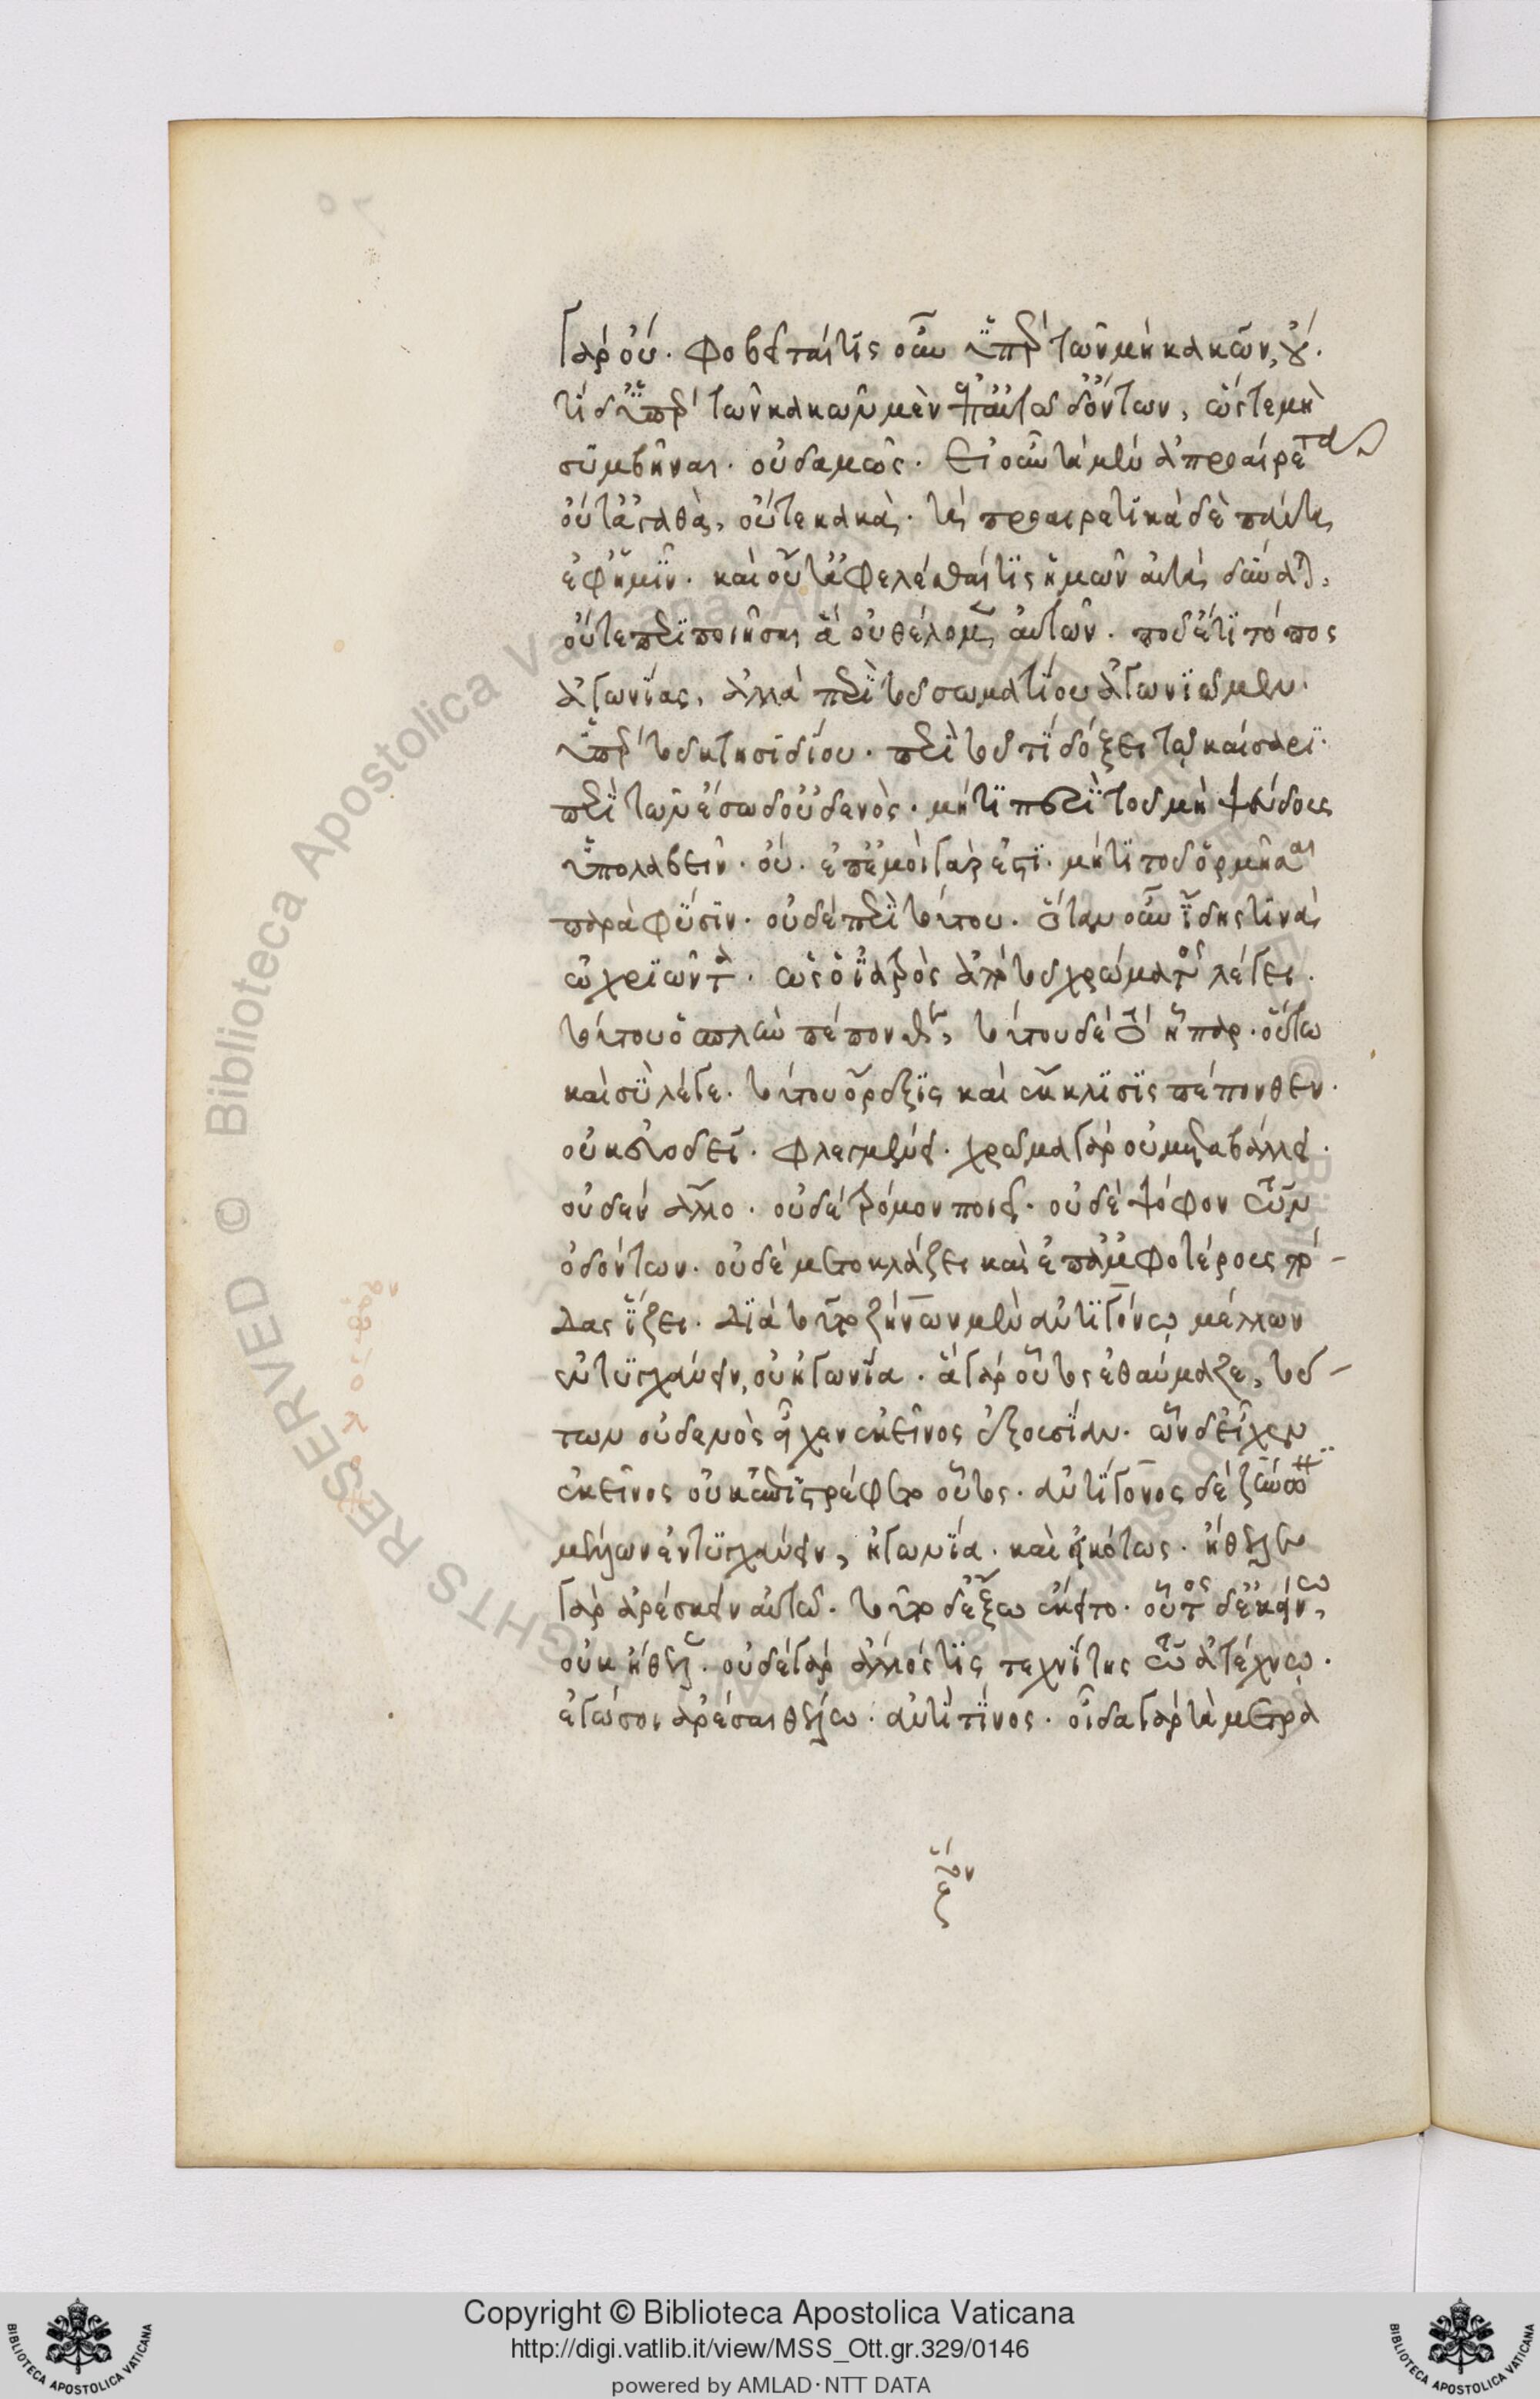 γὰρ οὔ. φοβεῖται τίς οὖν ὑπὲρ τῶν μὴ κακῶν, οὔ.
τί δ' ὑπὲρ τῶν κακῶν μὲν ἐπ' αὐτῶ δ' ὄντων, ὥστε μὴ
συμβῆναι. οὐδαμῶς. εἰ οὖν τὰ μὲν ἀπροαίρετα
οὔτ' ἀγαθὰ, οὔτε κακὰ. τὰ προαιρετικὰ δὲ πάντα
ἐφ' ἡμῖν. καὶ οὔτ' ἀφελέσθαι τίς ἡμῶν αὐτὰ δύναται,
οὔτε περιποιῆσαι ἃ οὐ θέλομεν αὐτῶν. ποῦ ἔτι τόπος
ἀγωνίας, ἀλλὰ περὶ τοῦ σωματίου ἀγωνιῶμεν.
ὑπὲρ τοῦ κτησιδίου. περὶ τοῦ τί δόξει τῷ καίσαρι.
περὶ τῶν ἔσω δ' οὐδενὸς. μή τι περὶ τοῦ μὴ ψεῦδος
ὑπολαβεῖν. οὔ. ἐπ' ἐμοὶ γάρ ἐστι. μή τι τοῦ ὁρμῆσαι
παρὰ φύσιν. οὐδὲ περὶ τούτου. ὅταν οὖν ἴδης τινὰ
ὠχριῶντα. ὡς ὁ ἰατρὸς ἀπὸ τοῦ χρώματος λέγει.
τούτου ὁ σπλὴν πέπονθεν, τούτου δὲ τὸ ἧπαρ. οὕτω
καὶ σὺ λέγε. τούτου ὄρεξις καὶ ἔκκλισις πέπονθεν.
οὐκ εὐοδεῖ. φλεγμαίνει. χρῶμα γὰρ οὐ μεταβάλλει.
οὐδὲν ἄλλο. οὐδὲ τρόμον ποιεῖ. οὐδὲ ψόφον τῶν
ὀδόντων. οὐδὲ μετοκλάζει καὶ ἐπ' ἀμφοτέρους πό-
δας ἵζει. διὰ τοῦτο ζήνων μὲν ἀντιγόνω μέλλων
ἐντυγχάνειν, οὐκ ἠγωνία. ἃ γὰρ οὗτος ἐθαύμαζε, τού-
των οὐδενὸς εἶχεν ἐκεῖνος ἐξουσίαν. ὧν δ' εἶχεν
ἐκεῖνος οὐκ ἐπεστρέφετο οὗτος. ἀντίγονος δὲ ζήνωνι
μέλλων ἐντυγχάνειν, ἠγωνία. καὶ εἰκότως. ἤθελε
γὰρ ἀρέσκειν αὐτῶ. τοῦτο δ' ἔξω ἔκειτο. οὗτος δ' ἐκείνω,
οὐκ ἤθελεν. οὐδὲ γὰρ ἄλλός τις τεχνίτης τῶ ἀτέχνω.
ἐγώ σοι ἀρέσαι θέλω. ἀντὶ τίνος. οἶδα γὰρ τὰ μέτρα